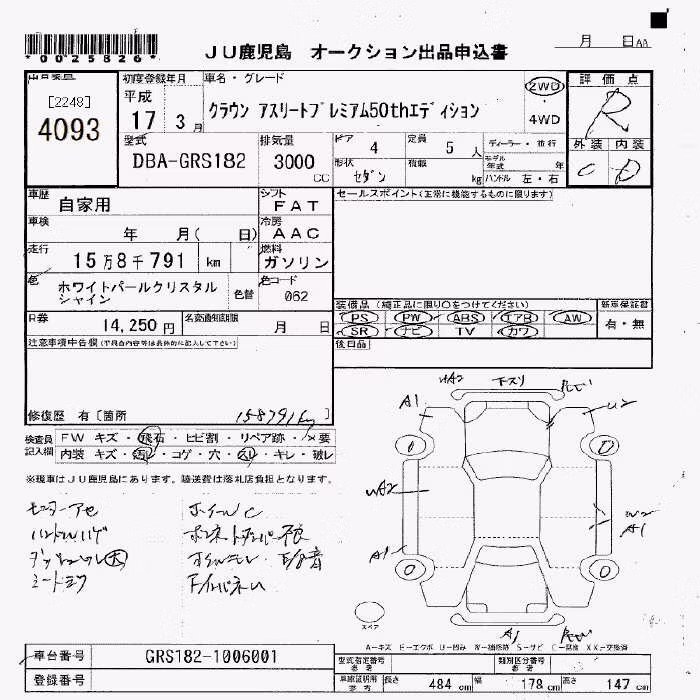 *0025826*
JU鹿児島 オークション出品申込書
月 日AA
[2248]
4093
初度登録年月
平成
17 3月
車名・グレード
クラウン アスリートプレミアム50thエディション
2WD
4WD
評価点
R
外装 内装
C D
型式
DBA-GRS182
排気量
3000 CC
ドア 4
定員 5 人
形状 セダン
積載 kg
ディーラー・並行
モデル年式 年
ハンドル 左・右
車歴
自家用
シフト
FAT
車検
年 月( 日)
冷房
AAC
走行
15万8千791 km
燃料
ガソリン
色
ホワイトパールクリスタル
シャイン
色替
色コード
062
R券
14,250円
名変通知期限
月 日
セールスポイント(正常に機能するものに限ります)
装備品(純正品に限り○をつけてください)
PS PW ABS エアB AW
SR ナビ TV カワ
新車保証書
有・無
後日品
注意事項申告欄(不具合内容等は具体的に記入して下さい)
修復歴 有〔箇所 〕
158791km
検査員
記入欄
FW キズ・飛石・ヒビ割・リペア跡・×要
内装 キズ・汚レ・コゲ・穴・スリ・キレ・破レ
※現車はJU鹿児島にあります。陸送費は落札店負担となります。
ハンドルハゲ
ホイールC
A1
下スリ
U2
A1
A1
A1
スペア
A-キズ E-エクボ U-凹み W-補修跡 S-サビ C-腐蝕 X,XX-交換済
車台番号
GRS182-1006001
登録番号
型式指定番号
参考
類別区分番号
参考
車庫証明用
参考
長さ 484 cm
幅 178 cm
高さ 147 cm